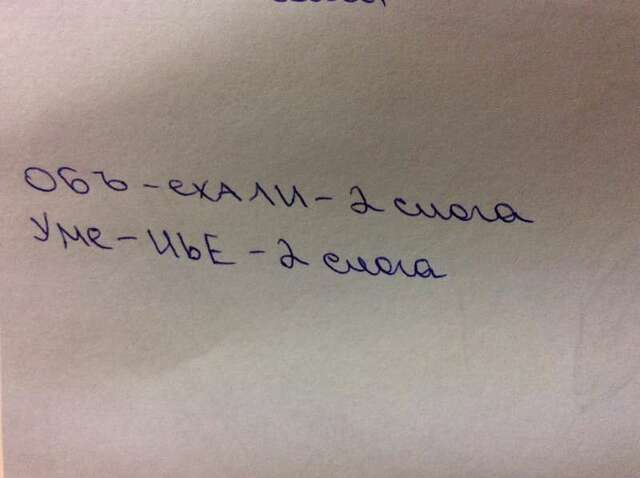 ОБЪ-еХАЛИ-2 слога
Уме-НЬЕ-2 слога